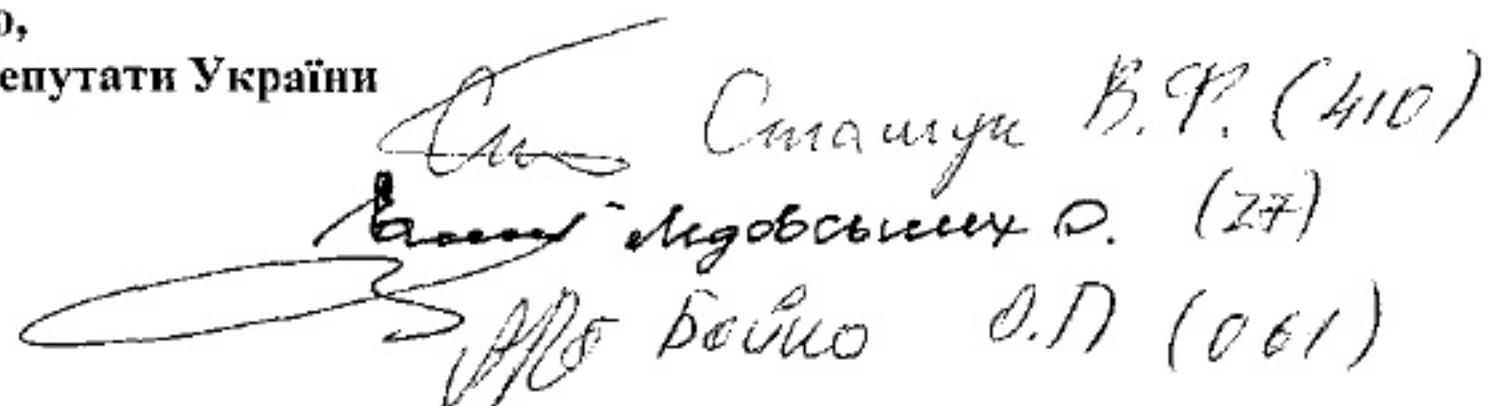 о,
епутати України
Сташук В.Ф. (410)
Лідовських О. (27)
Бойко О.П (061)